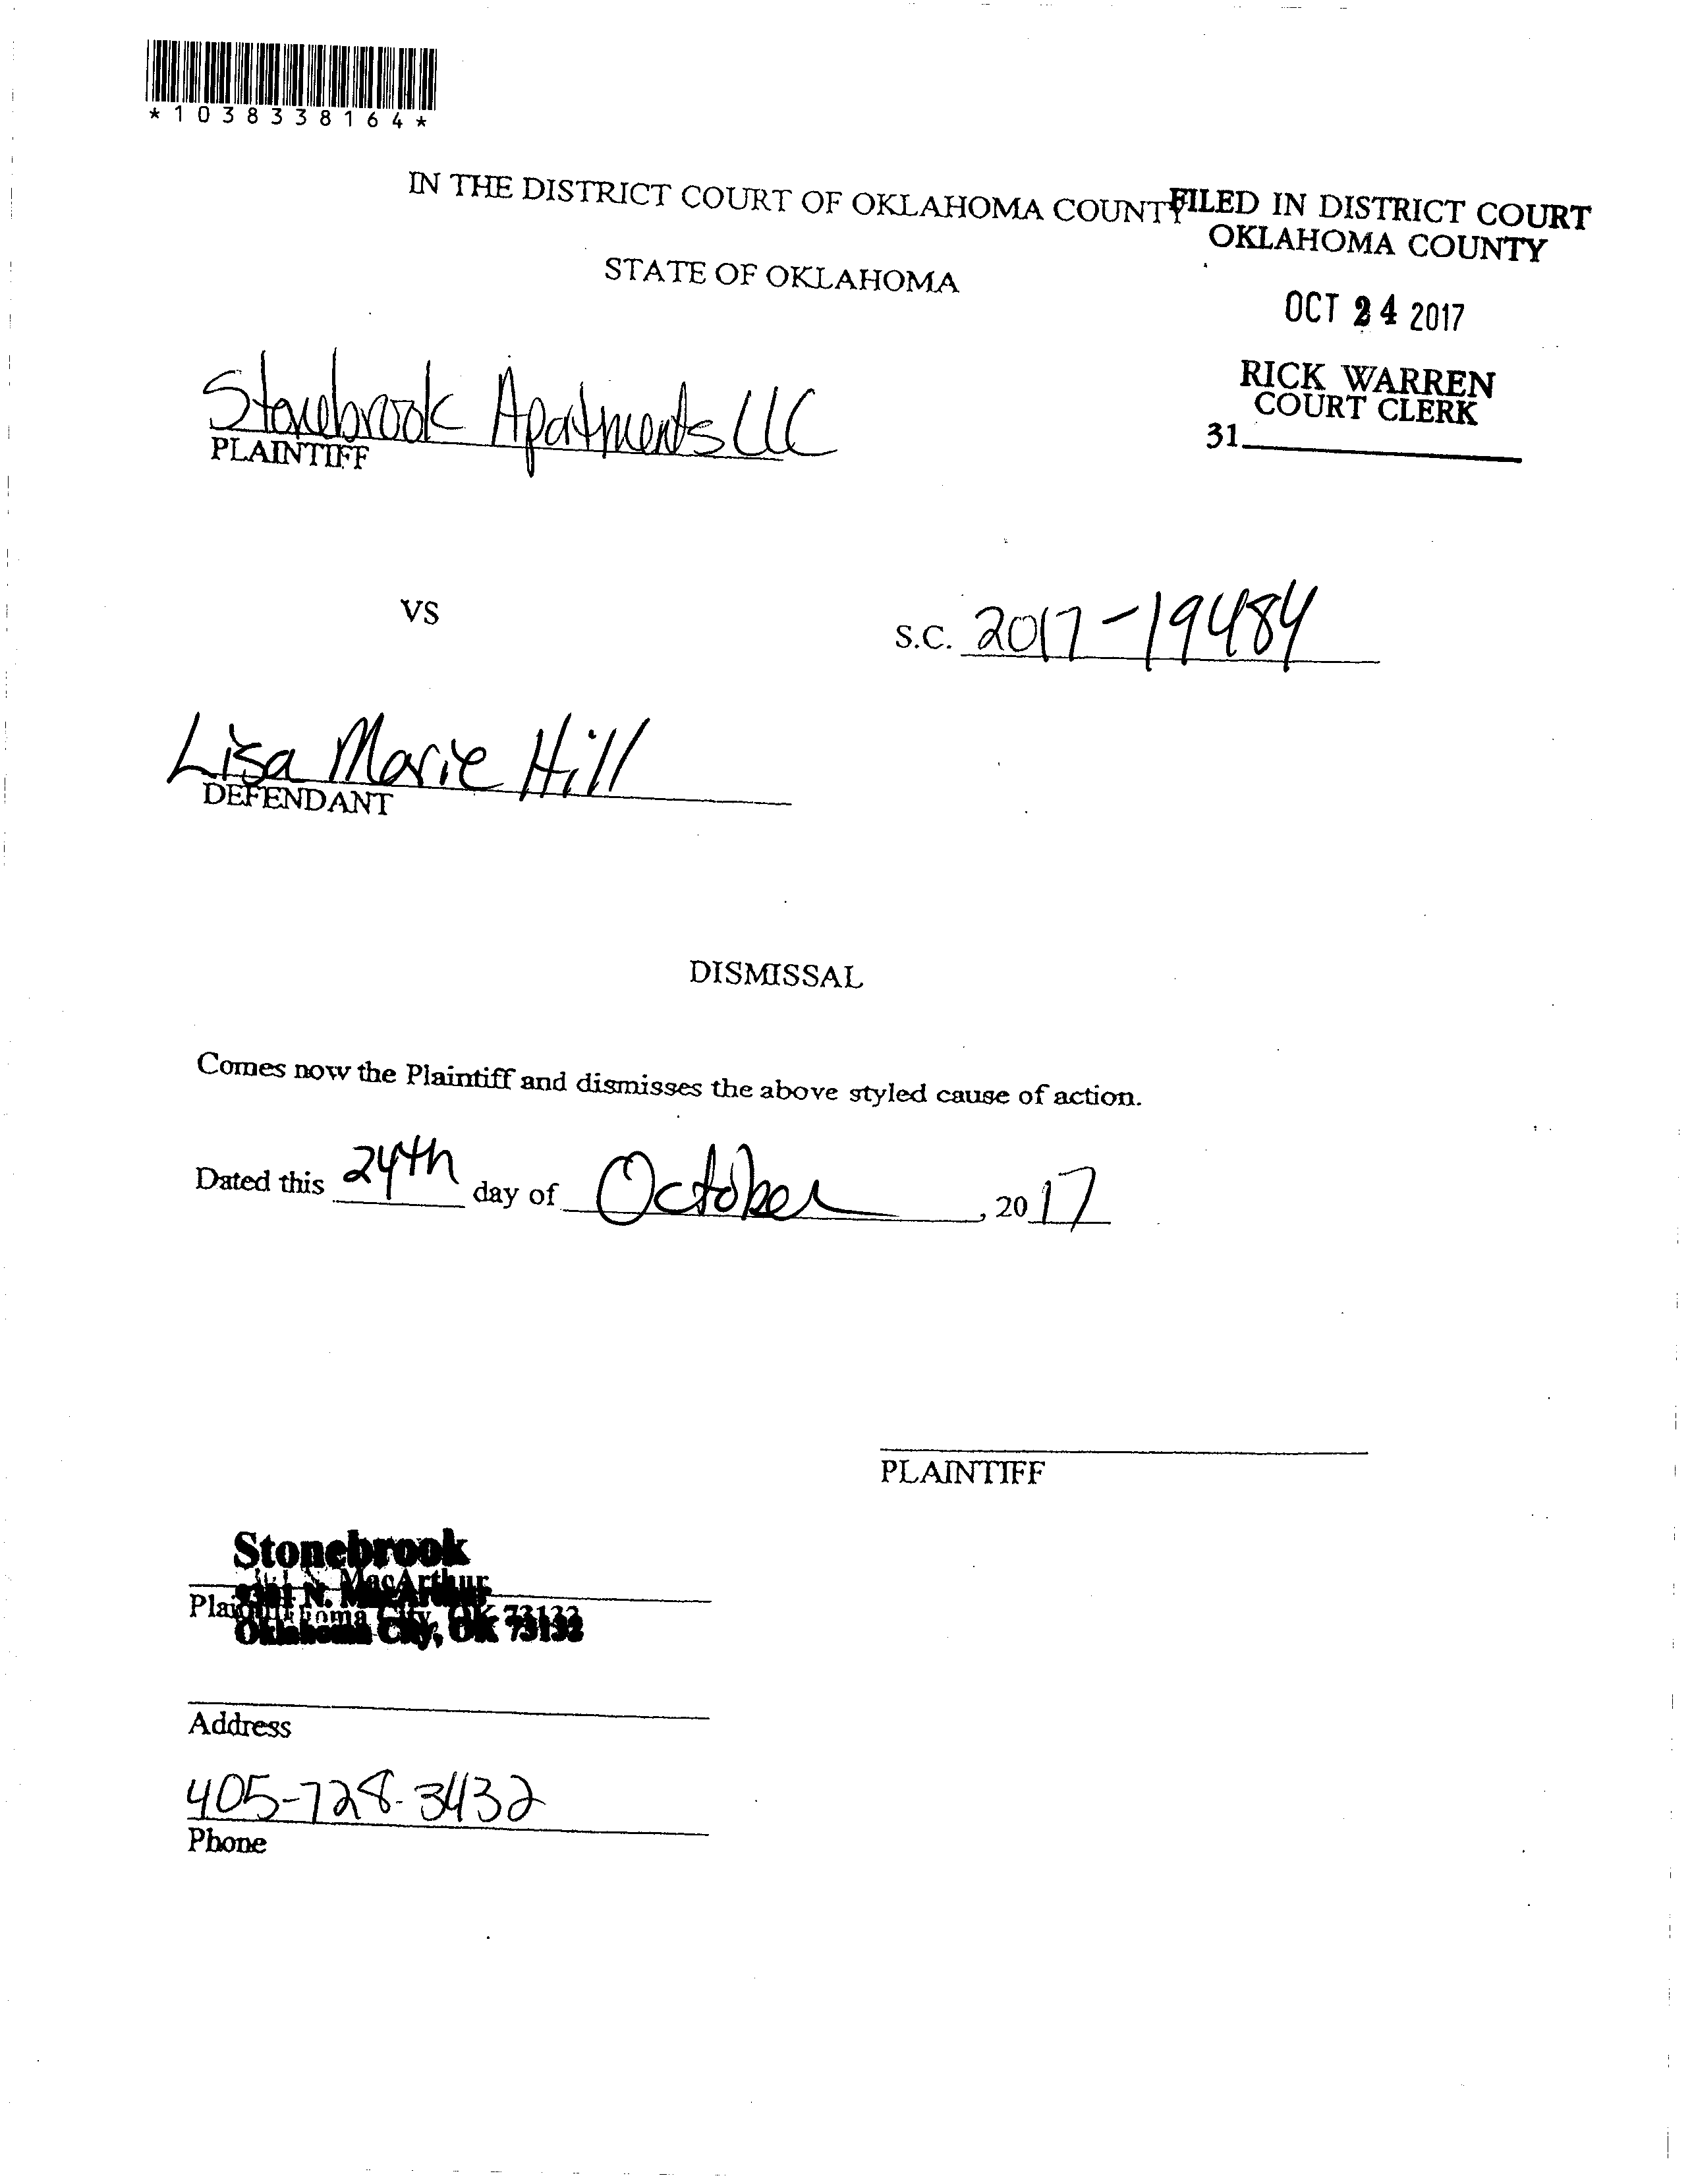 *1038338164*
IN THE DISTRICT COURT OF OKLAHOMA COUNTY
FILED IN DISTRICT COURT
OKLAHOMA COUNTY
STATE OF OKLAHOMA
OCT 24 2017
RICK WARREN
COURT CLERK
31
Stonebrook Apartments LLC
PLAINTIFF
VS
S.C. 2017-19484
Lisa Marie Hill
DEFENDANT
DISMISSAL
Comes now the Plaintiff and dismisses the above styled cause of action.
Dated this 24th day of October, 2017
PLAINTIFF
Stonebrook
N. MacArthur
Oklahoma City, OK 73132
Address
405-728-3432
Phone